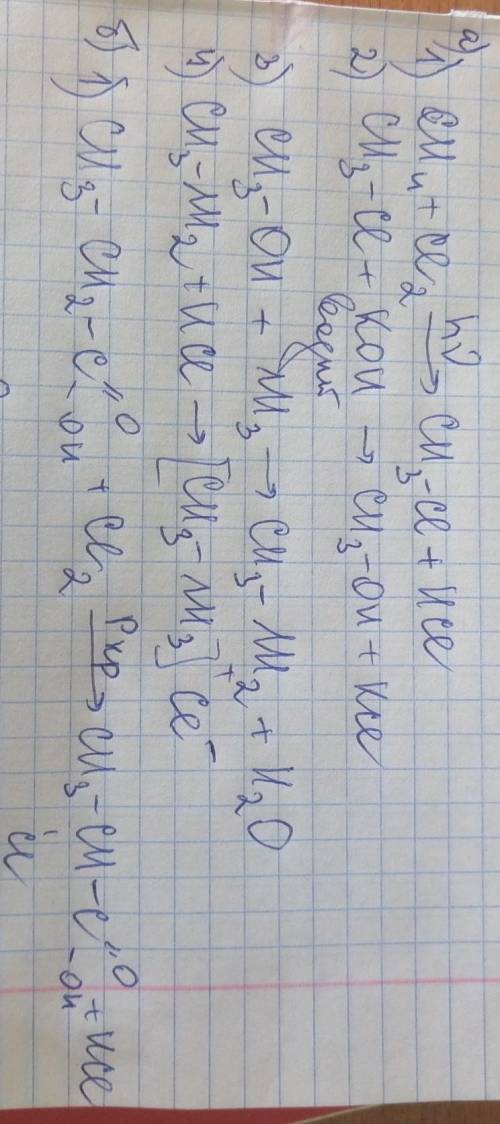 а)
1) CH4 + Cl2 hν→ CH3-Cl + HCl
2) CH3-Cl + KOH → CH3-OH + KCl
водный
3) CH3-OH + NH3 → CH3-NH2 + H2O
4) CH3-NH2 + HCl → [CH3-NH3]+ Cl-
б) 1) CH3-CH2-C=O-OH + Cl2 Pкр→ CH3-CH-C=O-OH + HCl
Cl